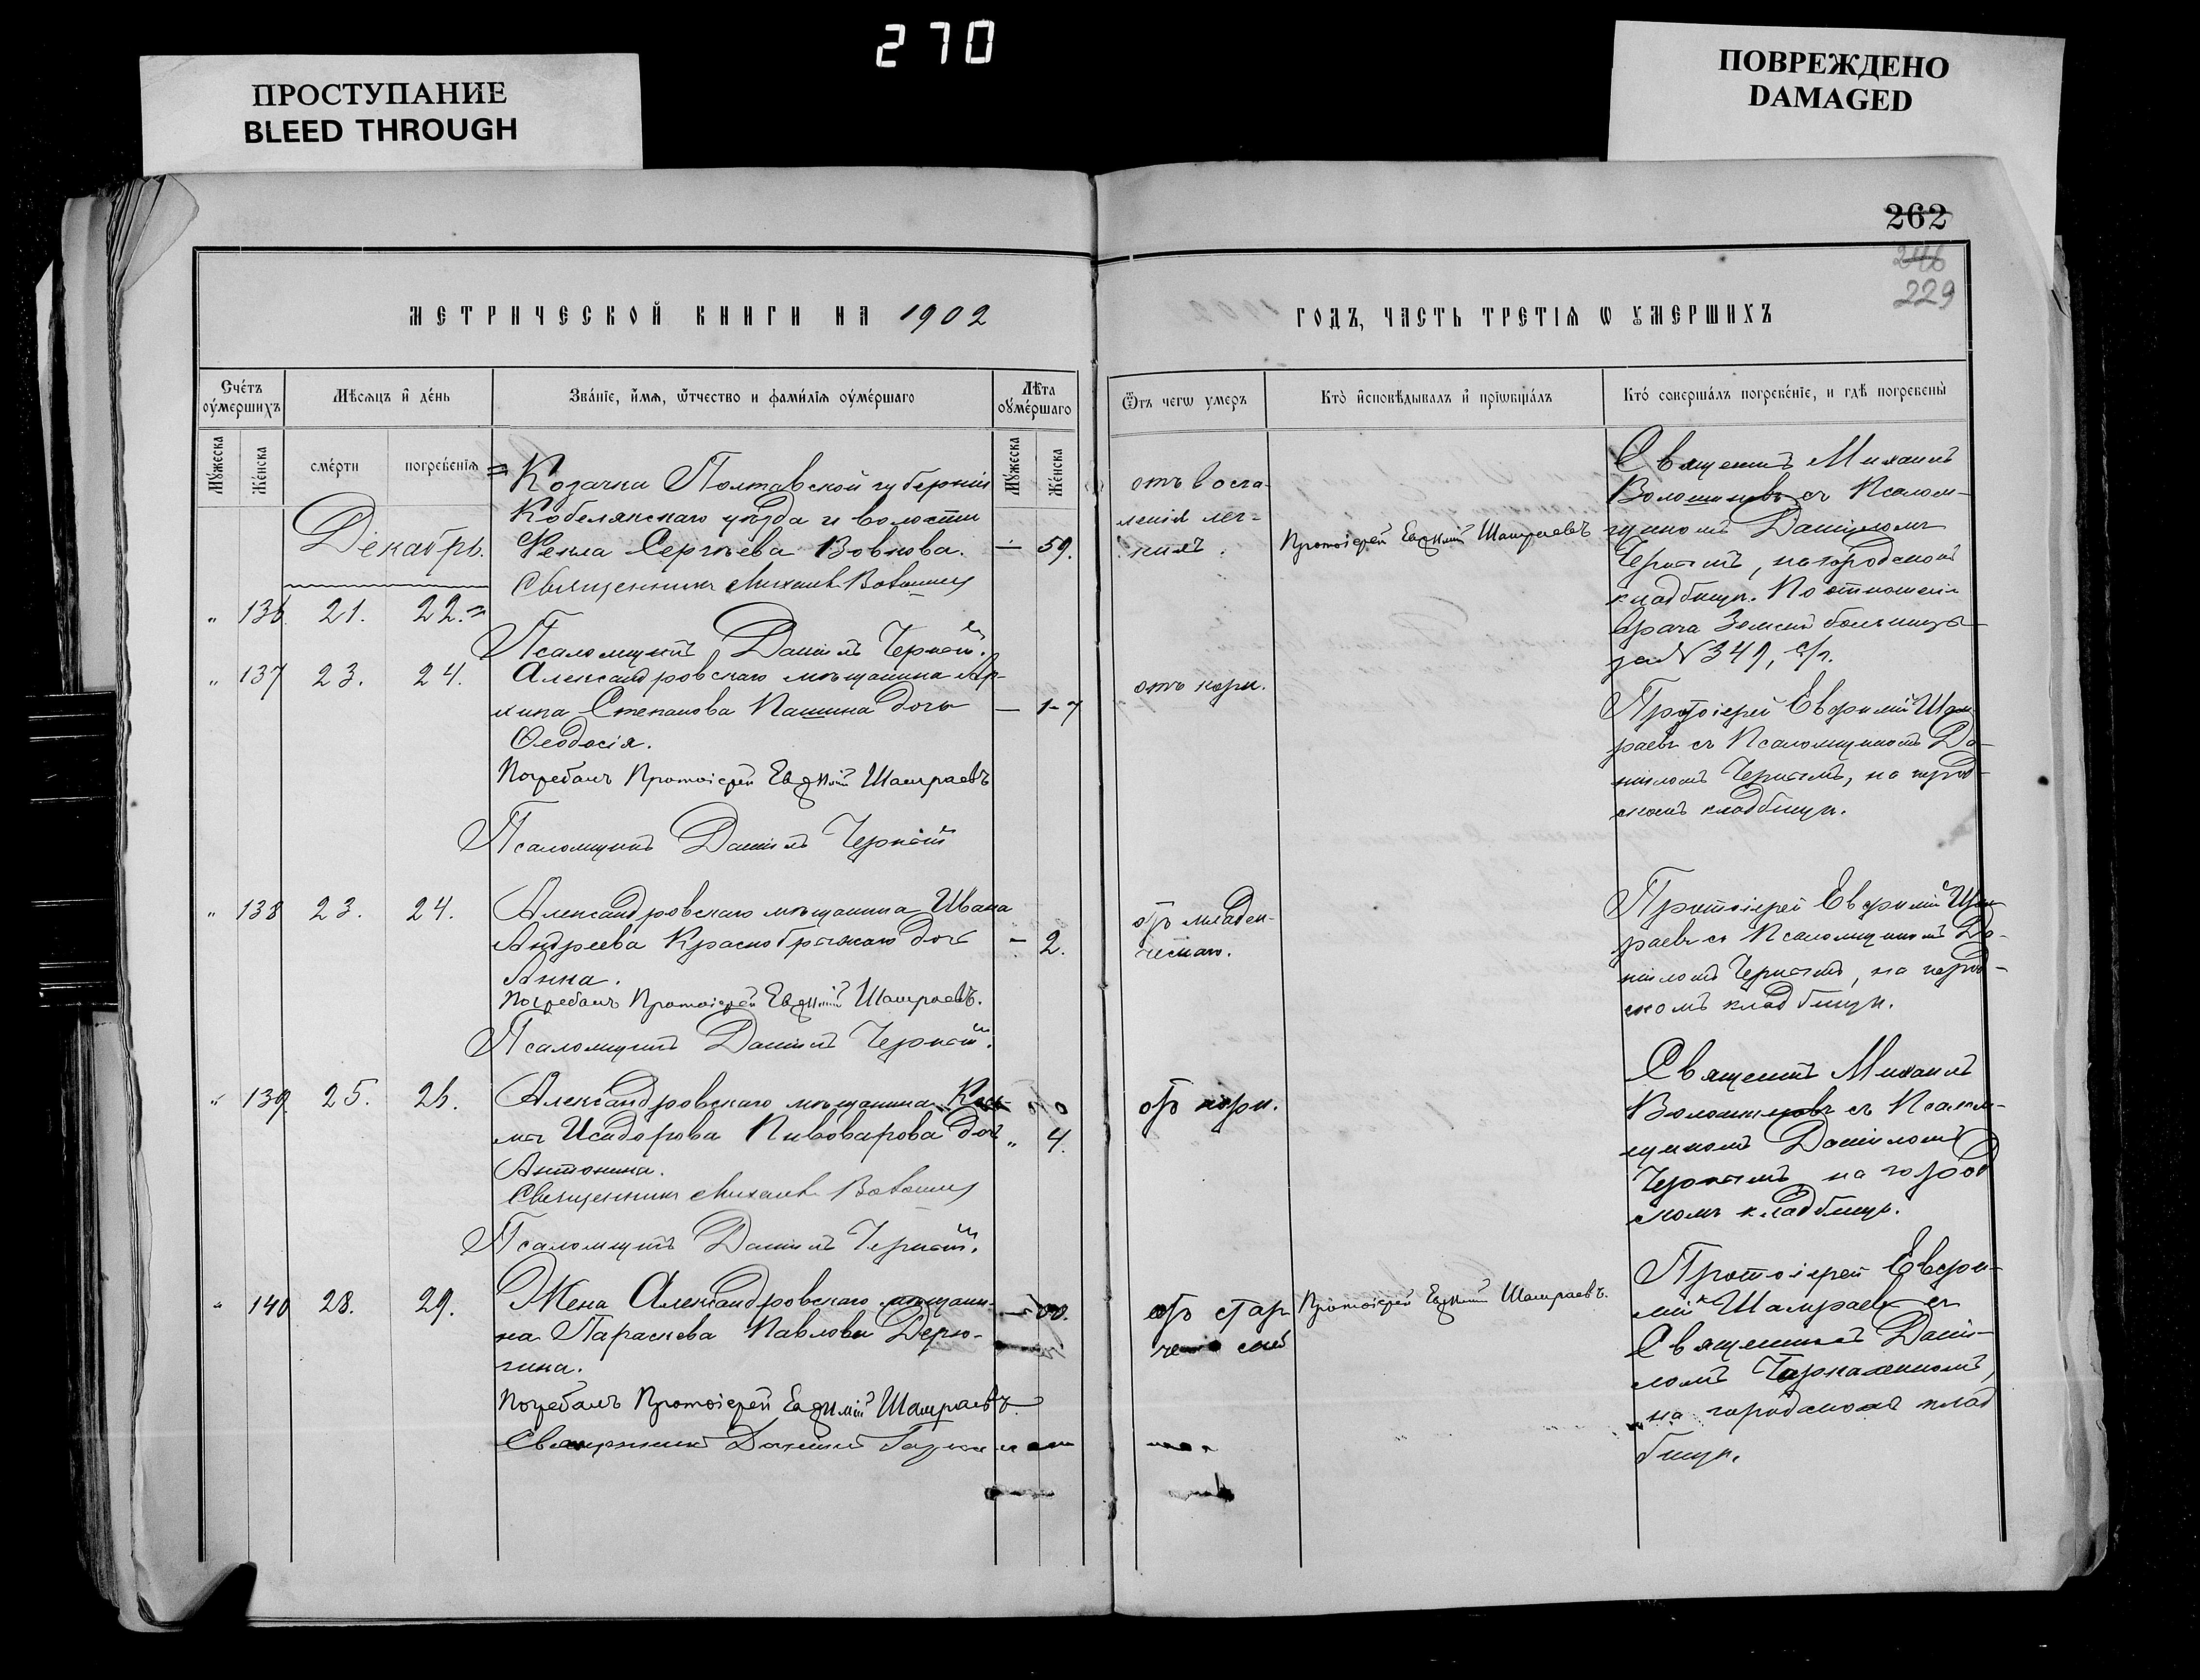 270
ПРОСТУПАНИЕ
BLEED THROUGH
ПОВРЕЖДЕНО
DAMAGED
262
246
229
МЕТРИЧЕСКОЙ КНИГИ НА 1902
ГОДЪ, ЧАСТЬ ТРЕТІѦ Ѡ УМЕРШИХЪ
Сче́тъ оу҆ме́ршихъ
Мѣ́сѧцъ и҆ де́нь
Зва́нїе, и҆́мѧ, ѻ҆́тчество и фами́лїѧ оу҆ме́ршагѡ
Лѣ́та оу҆ме́ршагѡ
Ѿ чегѡ̀ умеръ
Кто̀ и҆сповѣ́дывалъ и҆ прїѡбща́лъ
Кто́ соверша́лъ погребе́нїе, и гдѣ̀ погребены̀
Мꙋ́жеска
Же́нска
сме́рти
погребе́нїѧ
Мꙋ́жеска
Же́нска
Декабрь.
" 136 21. 22.
Козачка Полтавской губерніи
Кобелякскаго уѣзда и волости
Ѳекла Сергѣева Вовкова. — 59.
Священникъ Михаилъ
Псаломщикъ Даніилъ Черной.
отъ воспа-
ленія лег-
кихъ.
Протоіерей Евфимій Шамраевъ
Священикъ Михаилъ
Волошиновъ съ Псалом-
щикомъ Даніиломъ
Чернымъ, на городском
кладбищѣ. По отношені
врача Земской больницы
за № 349, с/г.
" 137 23. 24.
Александровскаго мѣщанина Ар-
хипа Степанова Пашина дочь — 1-7
Ѳеодосія.
Погребалъ Протоіерей Евфимій Шамраевъ
Псаломщикъ Даніилъ Черной
отъ кори.
Протоіерей Евфимій Шам-
раевъ съ Псаломщикомъ Да-
ніиломъ Чернымъ, на город-
скомъ кладбищѣ.
" 138 23. 24.
Александровскаго мѣщанина Ивана
Андреева Краснобрыжаго дочь — 2.
Анна.
Погребалъ Протоіерей Евфимій Шамраевъ.
Псаломщикъ Даніилъ Черной.
отъ младен-
ческаго.
Протоіерей Евфимій Шам
раевъ съ Псаломщикомъ Да-
ніиломъ Чернымъ, на город-
скомъ кладбищѣ.
" 139 25. 26.
Александровскаго мѣщанина Кось-
мы Исидорова Пивоварова дочь " 4.
Антонина.
Священникъ Михаилъ
Псаломщикъ Даніилъ Черной.
отъ кори.
Священикъ Михаилъ
Волошиновъ съ Псалом-
щикомъ Даніиломъ
Чернымъ на город
скомъ кладбищѣ.
" 140 28. 29.
Жена Александровскаго мѣщани-
на Параскева Павлова Дерю-
гина.
Погребалъ Протоіерей Евфимій Шамраевъ.
Священникъ Даніилъ
отъ стар
Протоіерей Евфимій Шамраевъ.
Протоіерей Евфи-
мій Шамраевъ съ
Священикомъ Даніи-
ломъ
на городскомъ клад
бищѣ.